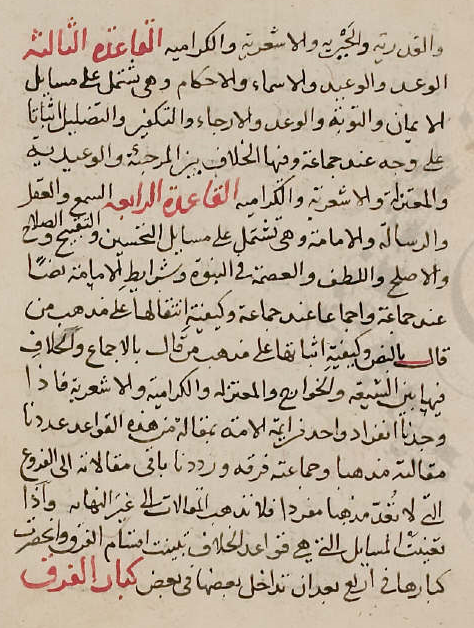 والقدرية والجبرية والاشعرية والكرامية القاعدة الثالثة
الوعد والوعيد والاسماء والاحكام وهي تشتمل على مسايل
الايمان والتوبة والوعيد والارجاء والتكفير والتضليل اثباتا
على وجه عند جماعة وفيها الخلاف بين المرجئة والوعيدية
والمعتزلة والاشعرية والكرامية القاعدة الرابعة السمع والعقل
والرسالة والامامة وهي تشتمل على مسايل التحسين والتقبيح والصلاح
والاصلح واللطف والعصمة في النبوة وشرايط الامامة نصا
عند جماعة واجماعا عند جماعة وكيفية انتقالها على مذهب من
قال بالنص وكيفية اثباتها على مذهب من قال بالاجماع والخلاف
فيها بين الشيعة والخوارج والمعتزلة والكرامية والاشعرية فاذا
وجدنا انفراد واحد من ايمة الامة بمقالة من هذه القواعد عددنا
مقالته مذهبا وجماعته فرقة ورددنا باقي مقالاته الى الفروع
التي لا تعد مذهبا مفردا فلا تذهب المقالات الى غير النهاية واذا
تعينت المسايل التي هي قواعد الخلاف تبينت اقسام الفرق وانحصرت
كبارها في اربع بعد ان تداخل بعضها في بعض كبار الفرق